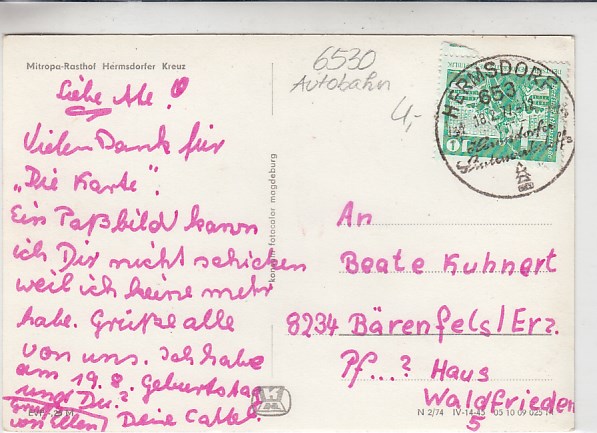 Mitropa-Rasthof Hermsdorfer Kreuz
Liebe Ate!
Vielen Dank für
"Die Karte".
Ein Paßbild kann
ich Dir nicht schicken
weil ich keine mehr
habe. Grüße alle
von uns. Ich habe
am 19.8. Geburtstag
und Du?
Grüße
von Ellen Deine
EVP
6530
Autobahn
4,-
HERMSDORF
653
konsum fotocolor magdeburg
An
Beate Kuhnert
8234 Bärenfels/Erz.
Pf...? Haus
Waldfrieden
5
N 2/74 IV-14-45 05 10 09 025